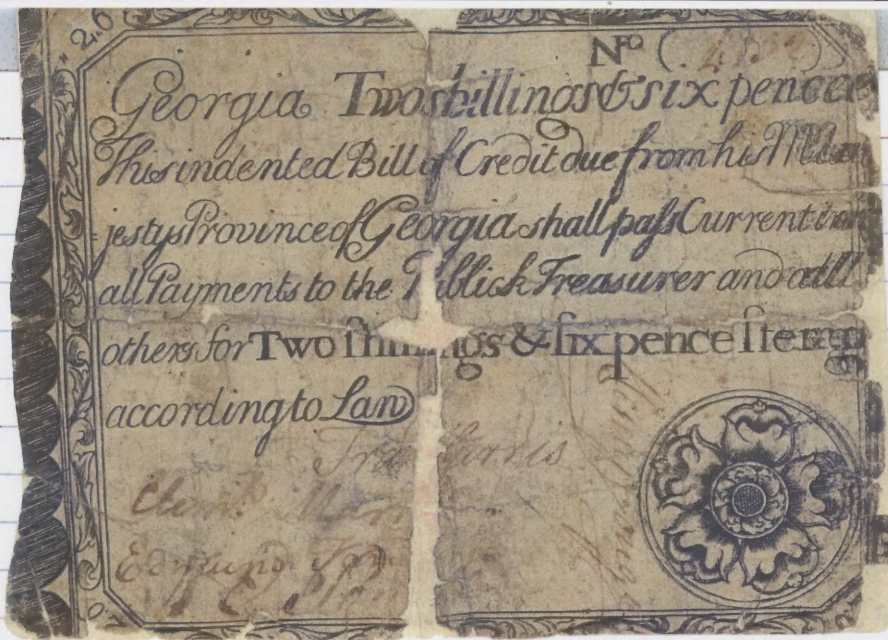 2,6
No (
Georgia Two shillings & six pence
This indented Bill of Credit due from his Ma
jestys Province of Georgia shall paſs Current in
all Payments to the Publick Treasurer and all
others for Two ſhillings & ſix pence ſterg
according to Law
Fra Harris
Edmund